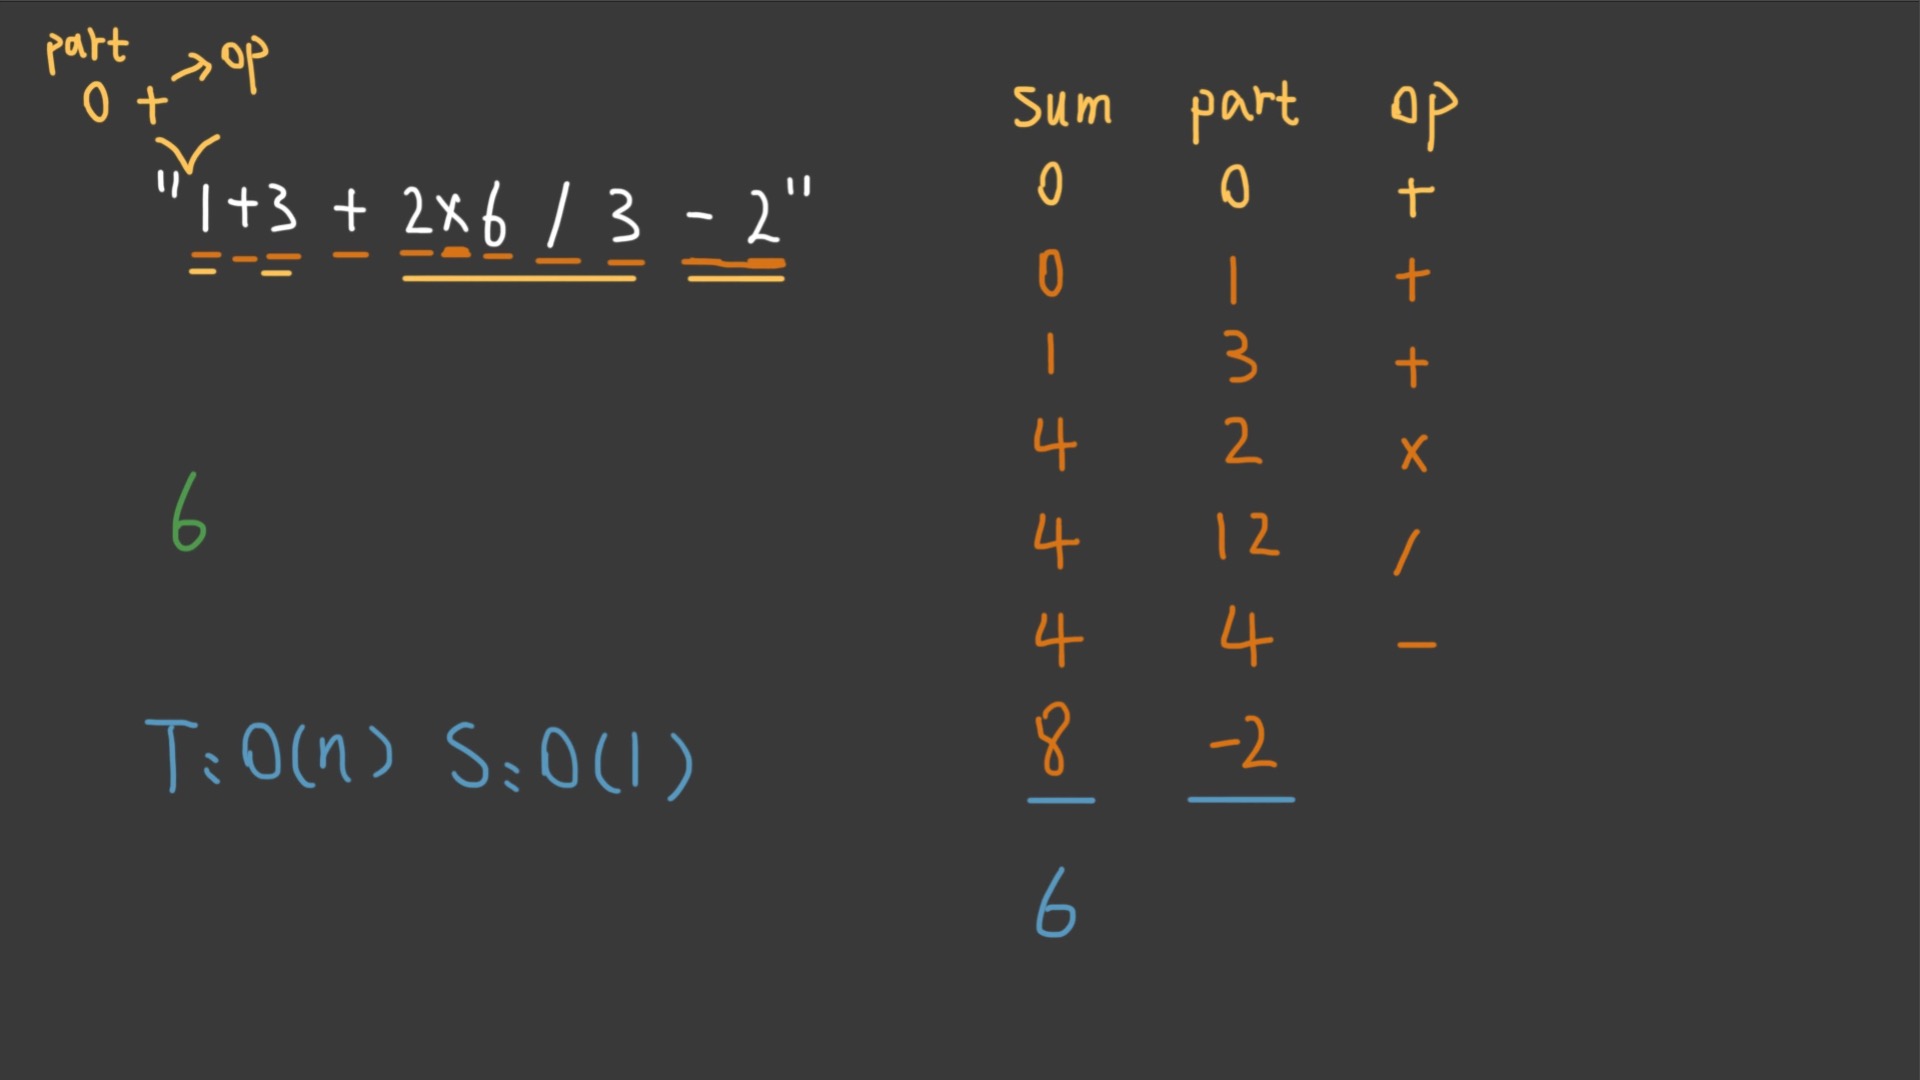 part
0 + → op
"1+3 + 2x6 / 3 - 2"
6
T: O(n) S: O(1)
sum part op
0 0 +
0 1 +
1 3 +
4 2 x
4 12 /
4 4 -
8 -2
6